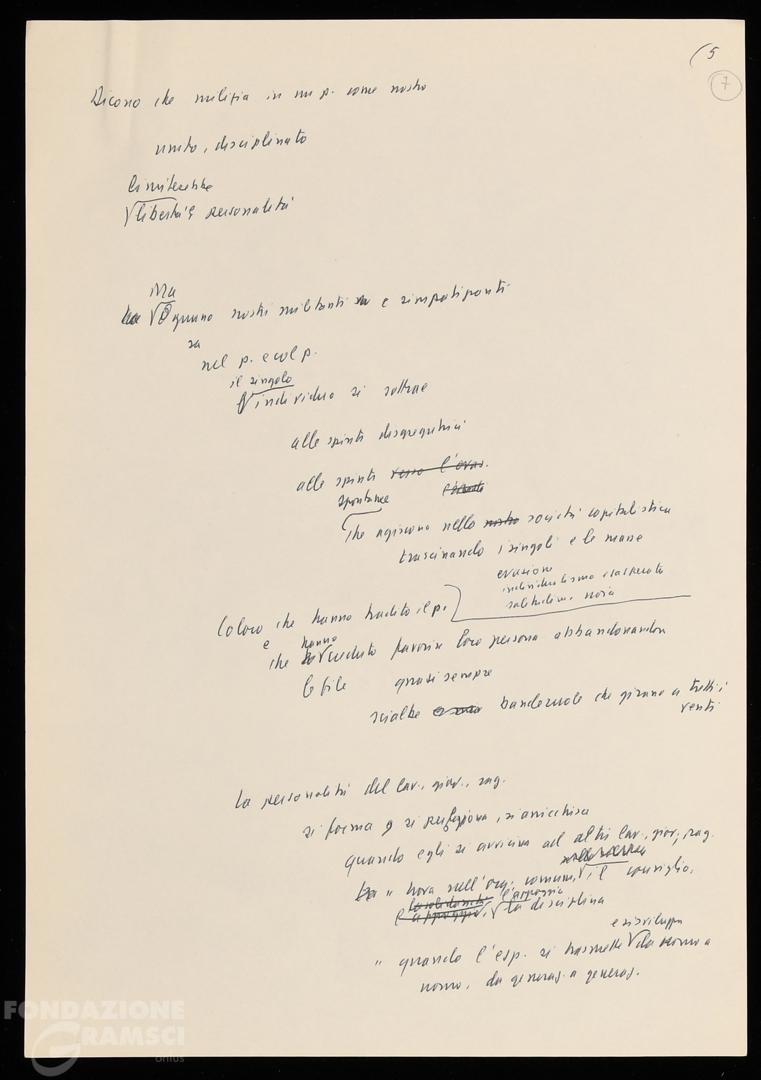 (5
7
Dicono che milizia in un p. come nostro
unito, disciplinato
limiterebbe
libertà e personalità
Ma
Ognuno nostri militanti e simpatizzanti
sa
nel p. e col p.
il singolo
individuo si sottrae
alle spinte disgregatrici
alle spinte verso l'evas.
spontanee
che agiscono nella nostra società capitalistica
trascinando i singoli e le masse
evasione
individualismo esasperato
solitudine, noia
Coloro che hanno tradito il p.
e hanno
che creduto favorire loro persona abbandonandon
le file quasi sempre
scialbe banderuole che girano a tutti i
venti
La personalità del lav., giov., rag.
si forma e si perfeziona, si arricchisce
quando egli si avvicina ad altri lav., giov., rag.
" trova nell'org. comune, il consiglio,
la solidarietà l'appoggio
l'appoggio, la disciplina
e si sviluppa
" quando l'esp. si trasmette da uomo a
uomo, da generaz. a generaz.
FONDAZIONE
GRAMSCI
onlus